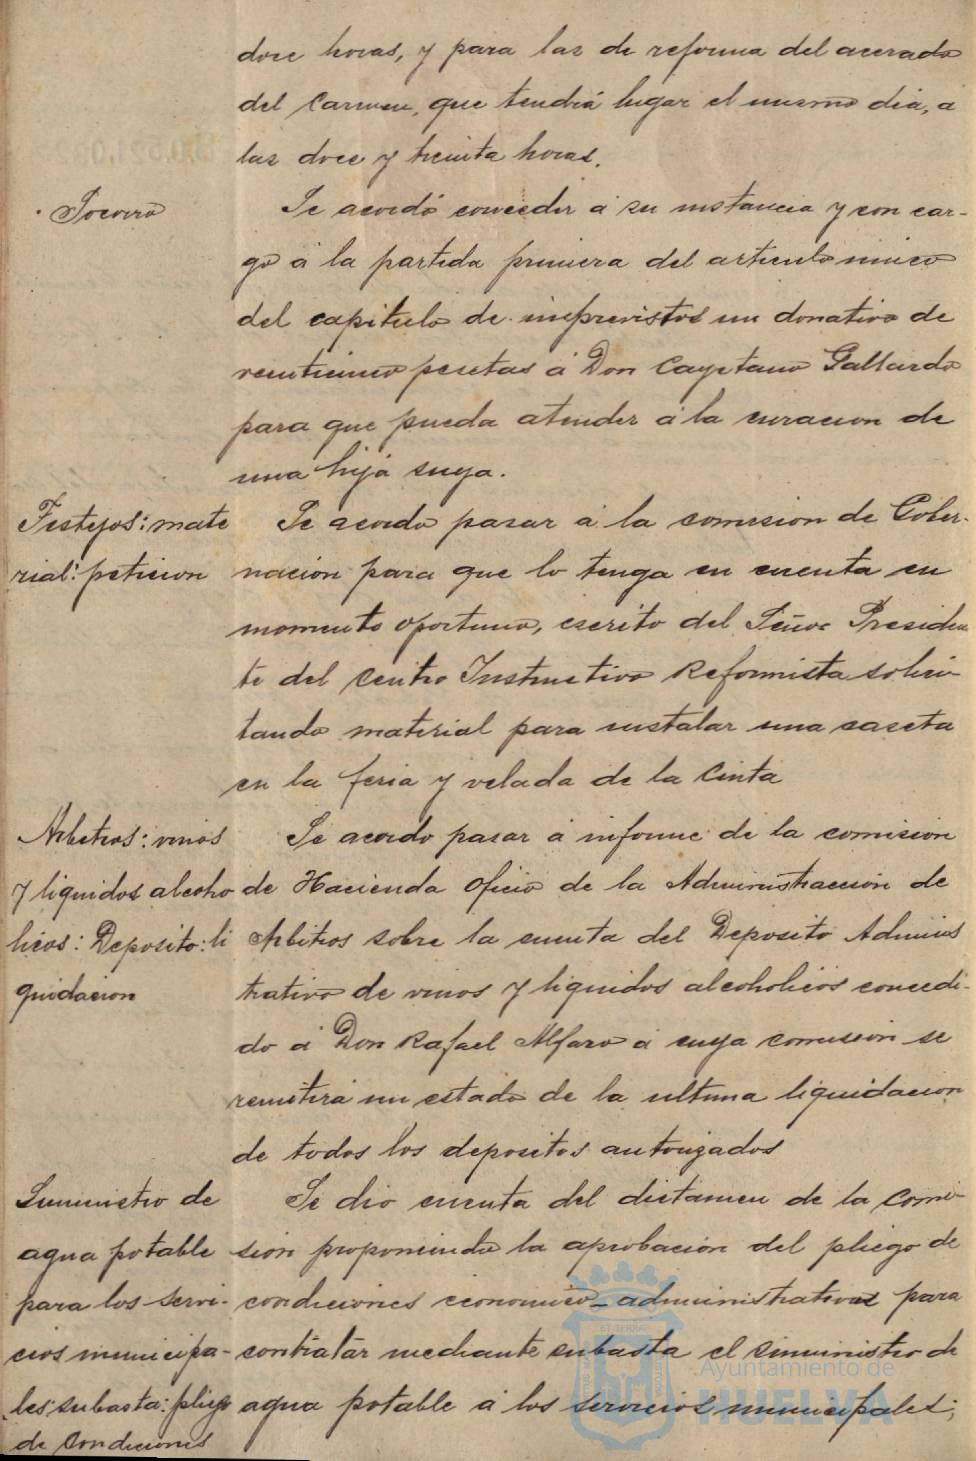 doce horas, y para las de reforma del acerado
del Carmen, que tendrá lugar el mismo dia, a
las doce y treinta horas.
Socorro
Se acordó conceder á su instancia y con car-
go á la partida primera del articulo unico
del capitulo de imprevistos un donativo de
veinticinco pesetas á Don Cayetano Gallardo
para que pueda atender á la curacion de
una hija suya.
Festejos: mate
rial: peticion
Se acordo pasar á la comision de Gober-
nacion para que lo tenga en cuenta en
momento oportuno, escrito del Señor Presiden
te del Centro Instructivo Reformista solici-
tando material para instalar una caseta
en la feria y velada de la Cinta
Arbitros: vinos
y liquidos alcoho
licos: Deposito: li
quidacion
Se acordo pasar á informe de la comision
de Hacienda oficio de la Administraccion de
Arbitros sobre la cuenta del Deposito Adminis
trativo de vinos y liquidos alcoholicos concedi-
do á Don Rafael Alfaro á cuya comision se
remitirá un estado de la ultima liquidacion
de todos los depositos autorizados
Suministro de
agua potable
para los servi-
cios municipa-
les: subasta: pliego
de condiciones
Se dio cuenta del dictamen de la comi-
sion proponiendo la aprobacion del pliego de
condiciones economico-administrativas para
contratar mediante subasta el suministro de
agua potable á los servicios municipales;
Ayuntamiento de
HUELVA